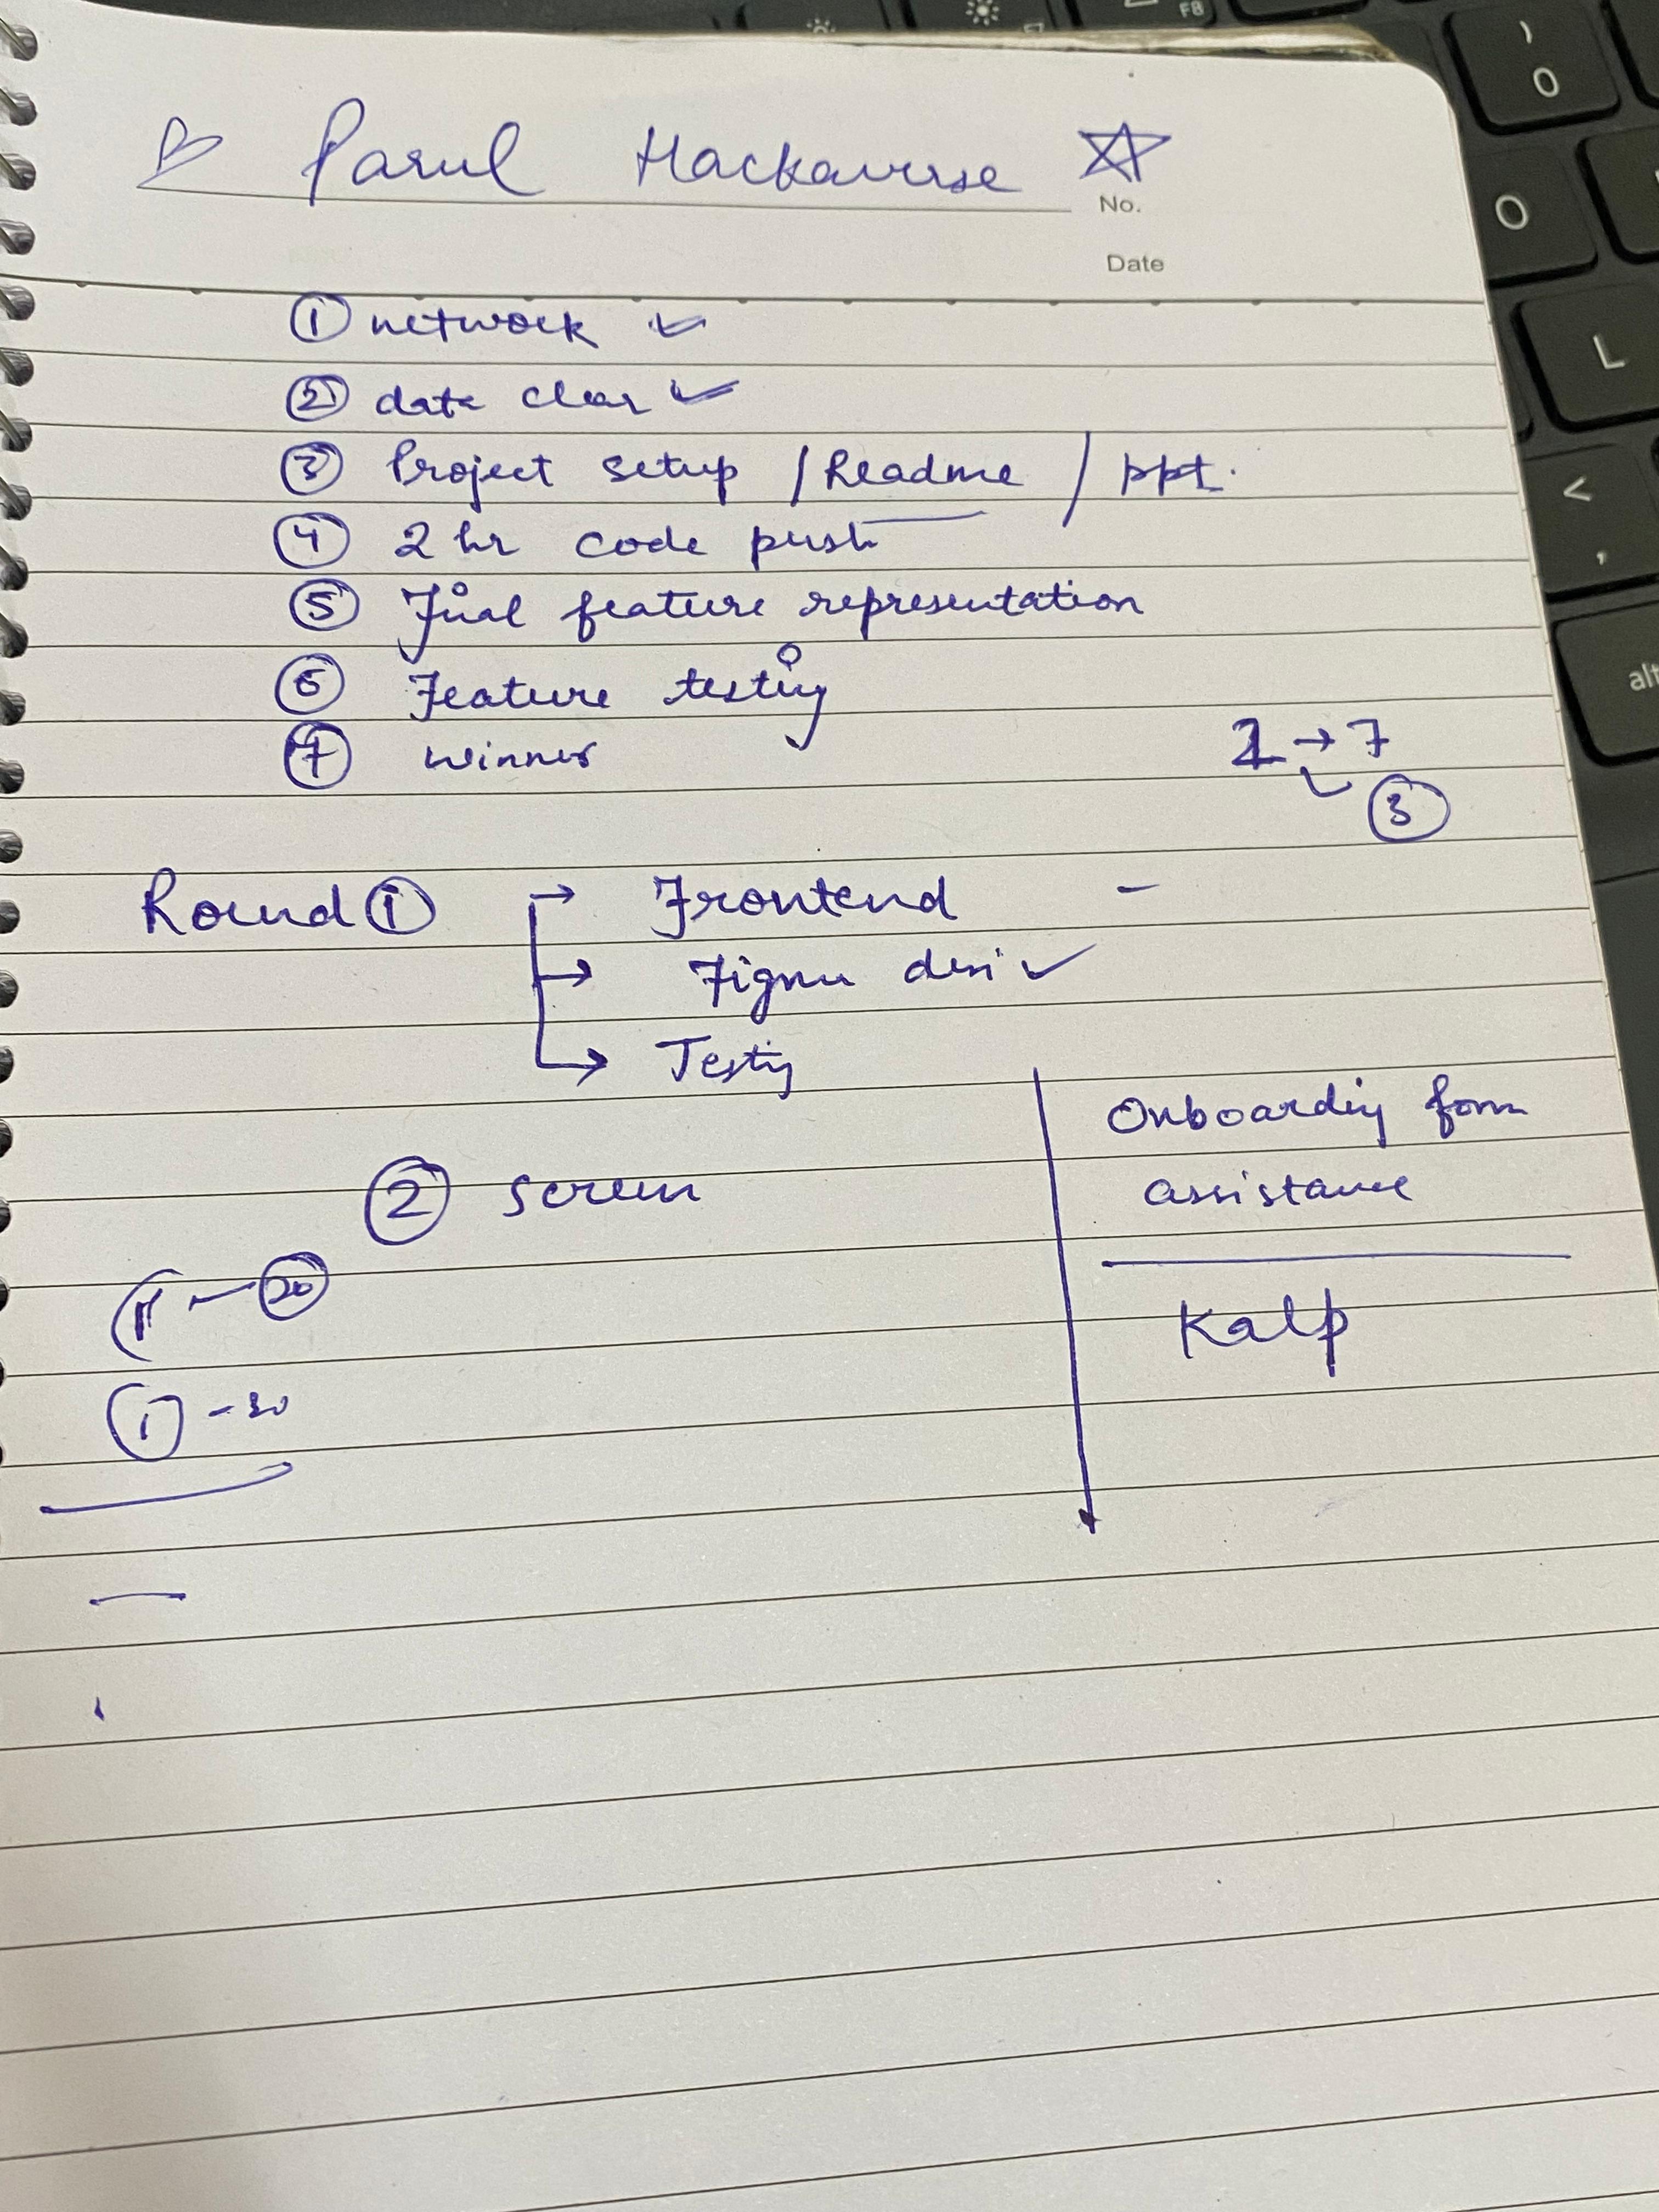 Parul Hackaverse
No.
Date
① network ✓
② data clear ✓
③ Project setup / Readme / ppt.
④ 2 hr code push
⑤ Final feature representation
⑥ Feature testing
⑦ winner
1 → 7
③
Round ① → Frontend -
→ Figma desi ✓
→ Testing
Onboarding form
② screen
assistance
20
Kalp
① - 30
F8
)
0
O
L
<
,
alt